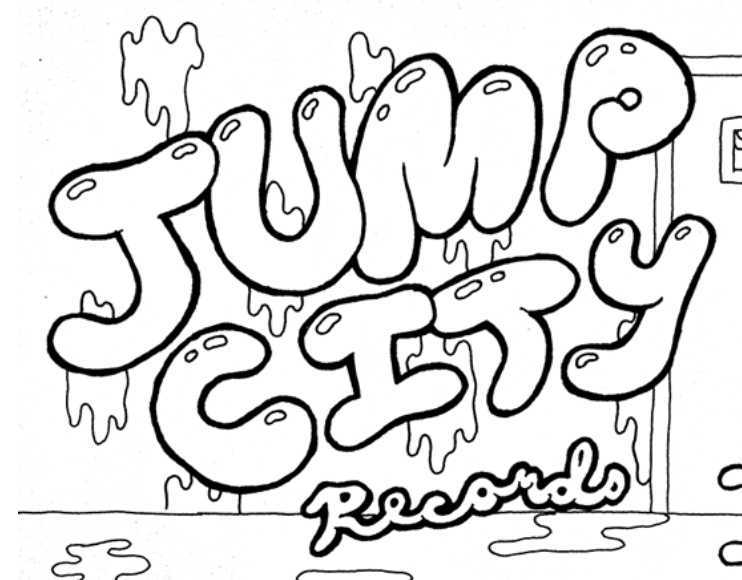 JUMP
CITY
Records